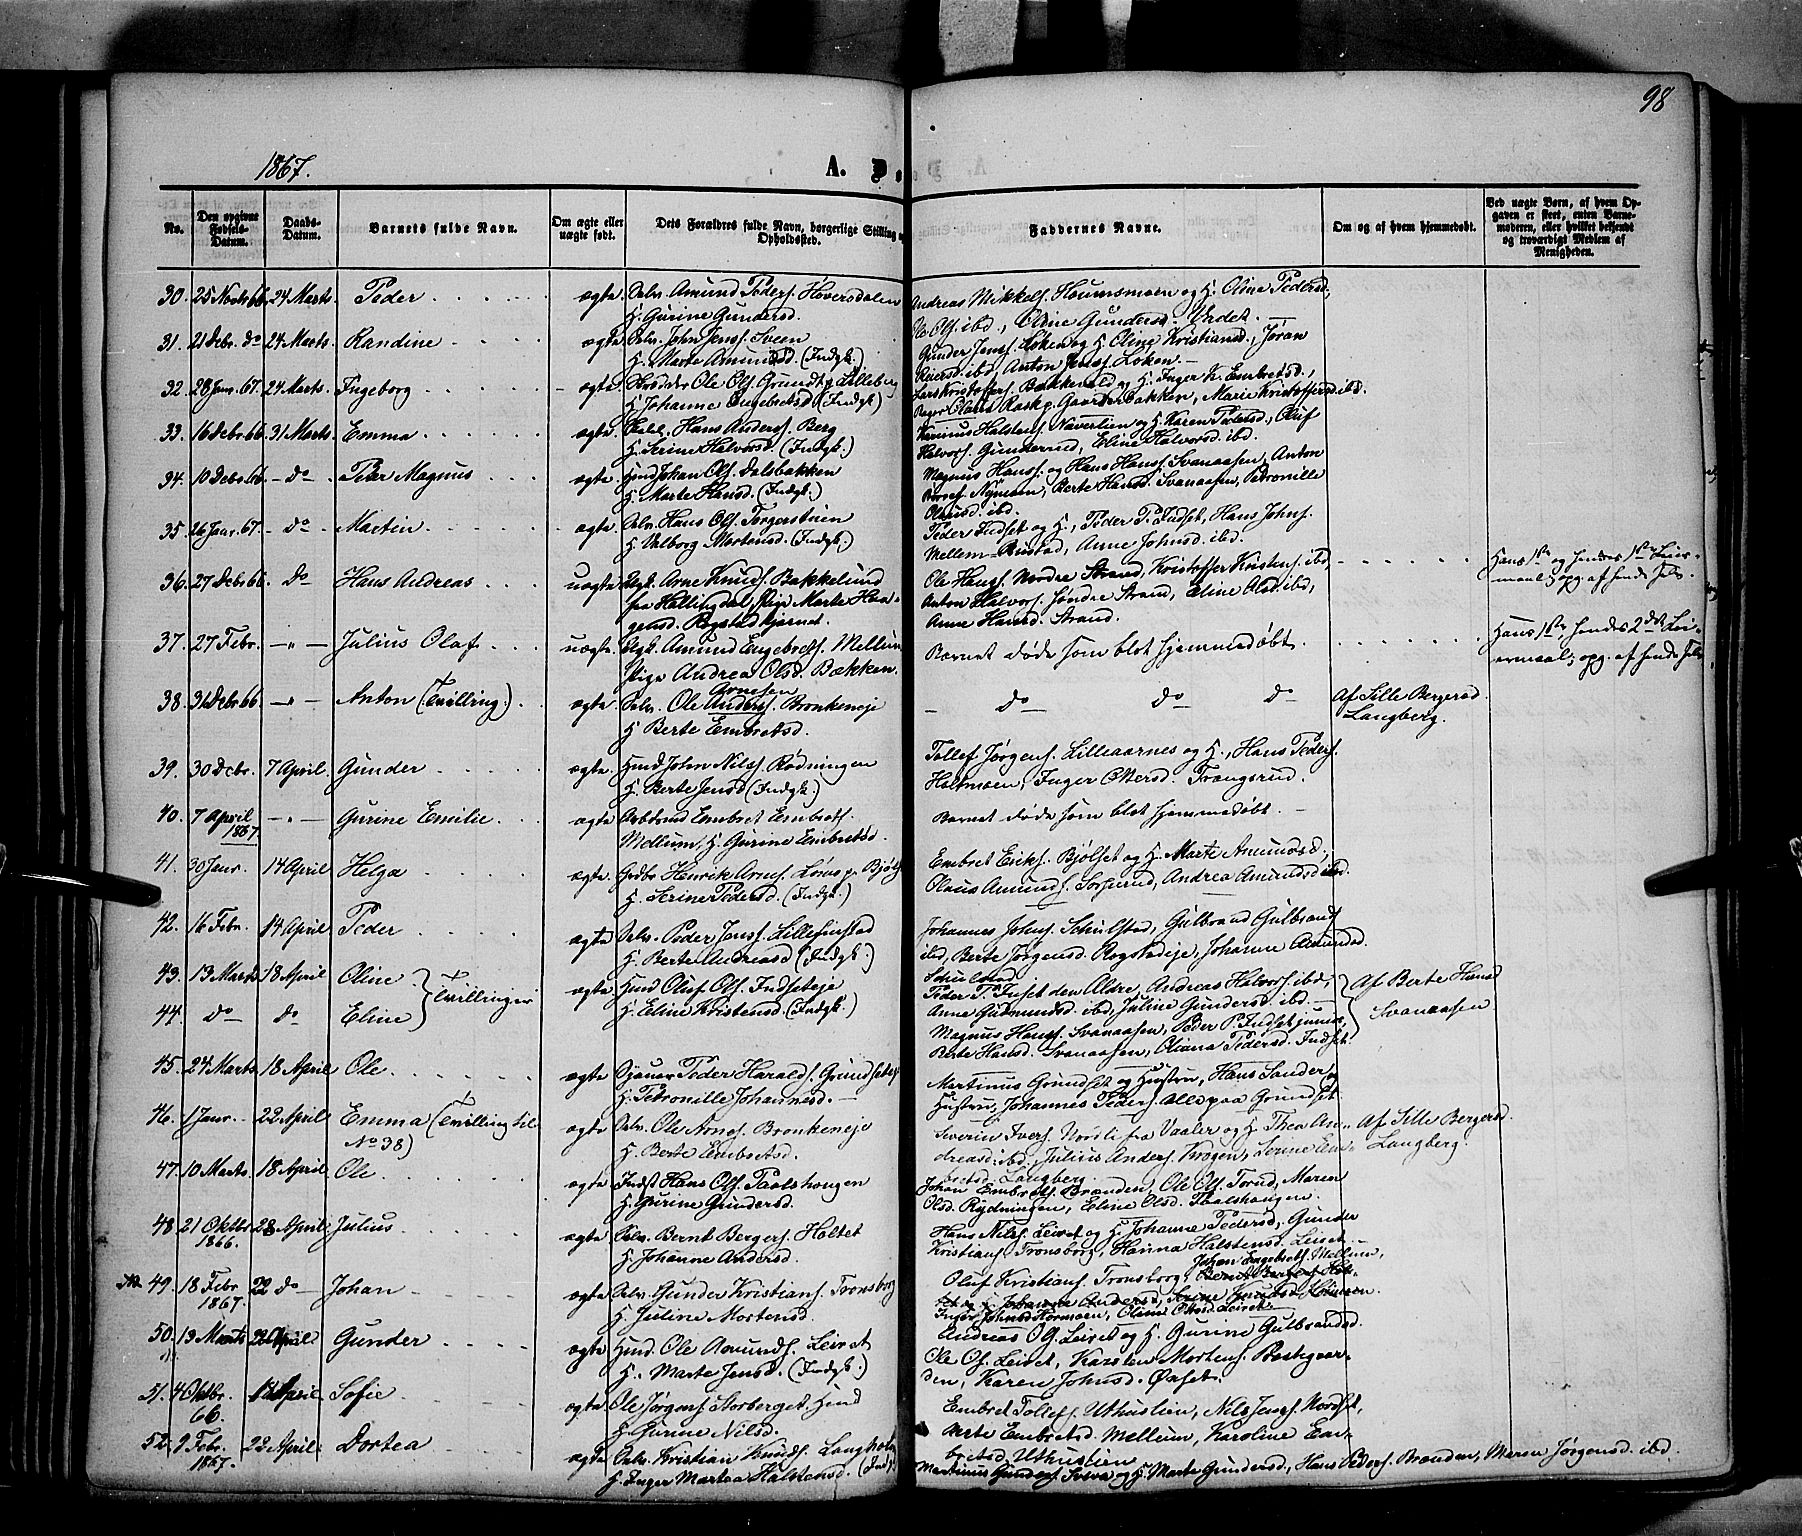 98
1867.
A. D.
No.
Den opgivne Fødsels-Datum.
Daabs-Datum.
Barnets fulde Navn.
Om ægte eller uægte født.
Dets Forældres fulde Navn, borgerlige Stilling og Opholdssted.
Faddernes Navne.
Om og af hvem hjemmedøbt.
Ved uægte Børn, af hvem Opgaven er skeet, enten Barnemoderen, eller hvilket bekjendt og troværdigt Medlem af Menigheden.
30. 25 Novb 66. 24 Marts. Peder ægte Selv. Amund Peders. Hoversdalen
H. Gurine Gundersd.
Andreas Mikkels. Houmsmoen og H. Oline Pedersd.,
Ole Ols. ibd., Oline Gundersd. Undet.
31. 21 Debr. do 24 Marts. Randine ægte Selv. John Jens. Sveen
H. Marte Amundsd. (Indgk.)
Gunder Jens. Løken og H. Oline Kristiansd., Jøran
Reiersd. ibd, Anton Jens. Løken.
32. 28 Janr. 67. 24 Marts. Ingeborg ægte Ole Ols. Grundt p. Lilleberg
H. Johanne Engebretsd. (Indgk.)
Lars Kristoffers. Bakkevold og H. Inger K. Embretsd.,
Claus Rask p. Gaarder Bakken, Marie Kristoffersd. ibd.
33. 16 Debr 66 31 Marts. Emma ægte Hans Anders. Berg
H. Serine Halvorsd. (Indgk.)
Halstens. Naverlien og H. Karen Petersd., Oluf
Halvors. Gundersrud, Eline Halvorsd. ibd.
34. 10 Debr 66. – do – Peter Magnus ægte Hmd Johan Ols. Dalsbakken
H. Marte Hansd. (Indgk.)
Magnus Hans. og Hans Hans. Svanaasen, Anton
Nymoen, Berte Hansd. Svanaasen, Petronille
Olausd. ibd.
35. 26 Janr. 67. – do Martin ægte Selv. Hans Ols. Torgerstuen
H. Valborg Mortensd. (Indgk.)
Peder Indset og H., Peder P. Indset, Hans Johns.
Mellem-Rustad, Anne Johnsd. ibd.
36. 27 Debr 66 do Hans Andreas uægte Ugk. Arne Knuds. Bakkelund
fra Hallingdal, Pige Marte Haa-
gensd. Rogstadkjernet.
Ole Haags. Nordre Strand, Kristoffer Kristens. ibd,
Anton Halvors. Søndre Strand, Eline Olsd. ibd,
Anne Hansd. Strand.
Hans 1ste og hendes 1ste Leier-
maal; opg. af hende selv.
37. 27 Febr. – „ – Julius Olaf uægte Ugk. Amund Engebrets. Mellum
Pige Andrea Olsd. Bækken.
Barnet døde som blot hjemmedøbt.
Hans 1ste, hendes 2det Lei-
ermaal; opg. af hende selv
38. 31 Debr 66 – „ – Anton (Tvilling) ægte Selv. Ole Anders. Bronkeneje
Arnesen
H. Berte Embretsd.
– do do do
Af Sille Bergersd.
Langberg.
39. 30 Debr. 7 April. Gunder ægte Hmd John Nils. Rødningen
H. Berte Jensd (Indgk.)
Tollef Jørgens. Lilleaarnes og H., Hans Peders.
Holtmoen, Inger Ottersd. Trangsrud.
40. 7 April 1867. – „ – Gurine Emilie ægte Arbdsmd Embret Embrets.
Mellum, H. Gurine Embretsd.
Barnet døde som blot hjemmedøbt.
41. 30 Janr. 14 April Helga ægte Grdbr Henrik Arnes. p. Bjøls.
H. Serine Pedersd. (Indgk.)
Embret Eriks. Bjølset og H. Marte Amundsd.,
Olaus Amunds. Sorperud, Andrea Amundsd ibd.
42. 16 Febr. 14 April Peder ægte Selv. Peder Jens. Lillefurstad
H. Berte Andreasd (Indgk.)
Johannes Johns. Schulstad, Gulbrand Gulbrands
ibd, Berte Jørgensd. Rogstadeje, Johanne Amundsd.
Schulstad
43. 13 Marts 18 April Oline ægte Hmd Oluf Ols. Indseteje
Tvillinger
H. Eline Kristensd. (Indgk.)
Peder P. Inset den Ældre, Andreas Halvors. ibd,
Anne Gudmundsd. ibd, Juline Gundersd. ibd.
Af Berte Hansd
Svanaasen
44. do do Eline
Magnus Hans. Svanaasen, Peder P. Indset junior,
Berte Hansd. Svanaasen, Oliana Pedersd. Indset.
45. 24 Marts 18 April Ole ægte Sjauer Peder Haralds. Grundseteje
H. Petronille Johannesd.
Martinus Grundset og Hustru, Hans Sander og
Hustru, Johannes Peders. Alle paa Grundset
46. 1 Janr. 22 April Emma (Tvilling til
No 38)
ægte Selv. Ole Arnes. Bronkeneje
H. Berte Embretsd.
Severin Ivers. Nordli fra Vaaler og H. Thea An-
dreasd. ibd, Julius Anders. Krogen, Serine Em-
bretsd. Langberg.
Af Sille Bergersd.
Langberg.
47. 10 Marts 18 April. Ole ægte Indst Hans Ols. Taalshaugen
H. Gurine Gundersd.
Johan Embrets. Brænden, Ole Ols. Torud, Maren
Olsd. Rydningen, Eline Olsd. Taalshaugen.
48 21 Oktbr 1866. 28 April Julius ægte Selv. Bernt Bergers. Holtet
H. Johanne Andersd.
Hans Nils. Leiret og H. Johanne Pedersd, Gunder
Kristians. Tronsborg, Hanna Halstensd. Leiret.
49. 18 Febr 1867. 22 do Johan ægte Selv. Gunder Kristians. Tronsborg
H. Juline Mortensd.
Johan Engebrets. Mellum,
Oluf Kristians. Tronsborg, Bernt Bergers. Hol-
tet og H. Johanne Andersd, Serine
Inger Johnsd Hormoen, Oline Ottersd. Leiret
50. 13 Marts 22 April Gunder ægte Hmd. Ole Amunds. Leiret
H. Marte Jensd. (Indgk.)
Andreas Ols. Leiret og H. Gurine Gulbrandsd.
Ole Ols. Leiret, Karsten Mortens. Prestgaar-
den, Karen Johnsd. Øaset.
51. 4 Oktbr. 66. April Sofie ægte Ole Jørgens. Storberget, Hmd
H. Gurine Nilsd.
Embret Tollefs. Uthuslien, Nils Jens. Nordset,
Marte Embretsd. Mellum, Karoline Em-
bretsd. Uthuslien
52. 9 Febr. 1867. 22 April. Dortea ægte Selv. Kristian Knuds. Langholen
H. Inger Martea Halstensd. (Indgk.
Martinus Gunders. og H. Marte Gundersd., Hans Peders. Brænden, Maren Jørgensd. ibd.